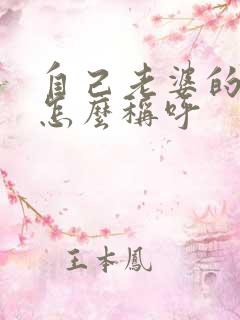 自己老婆的
怎麼稱呼
王本鳳